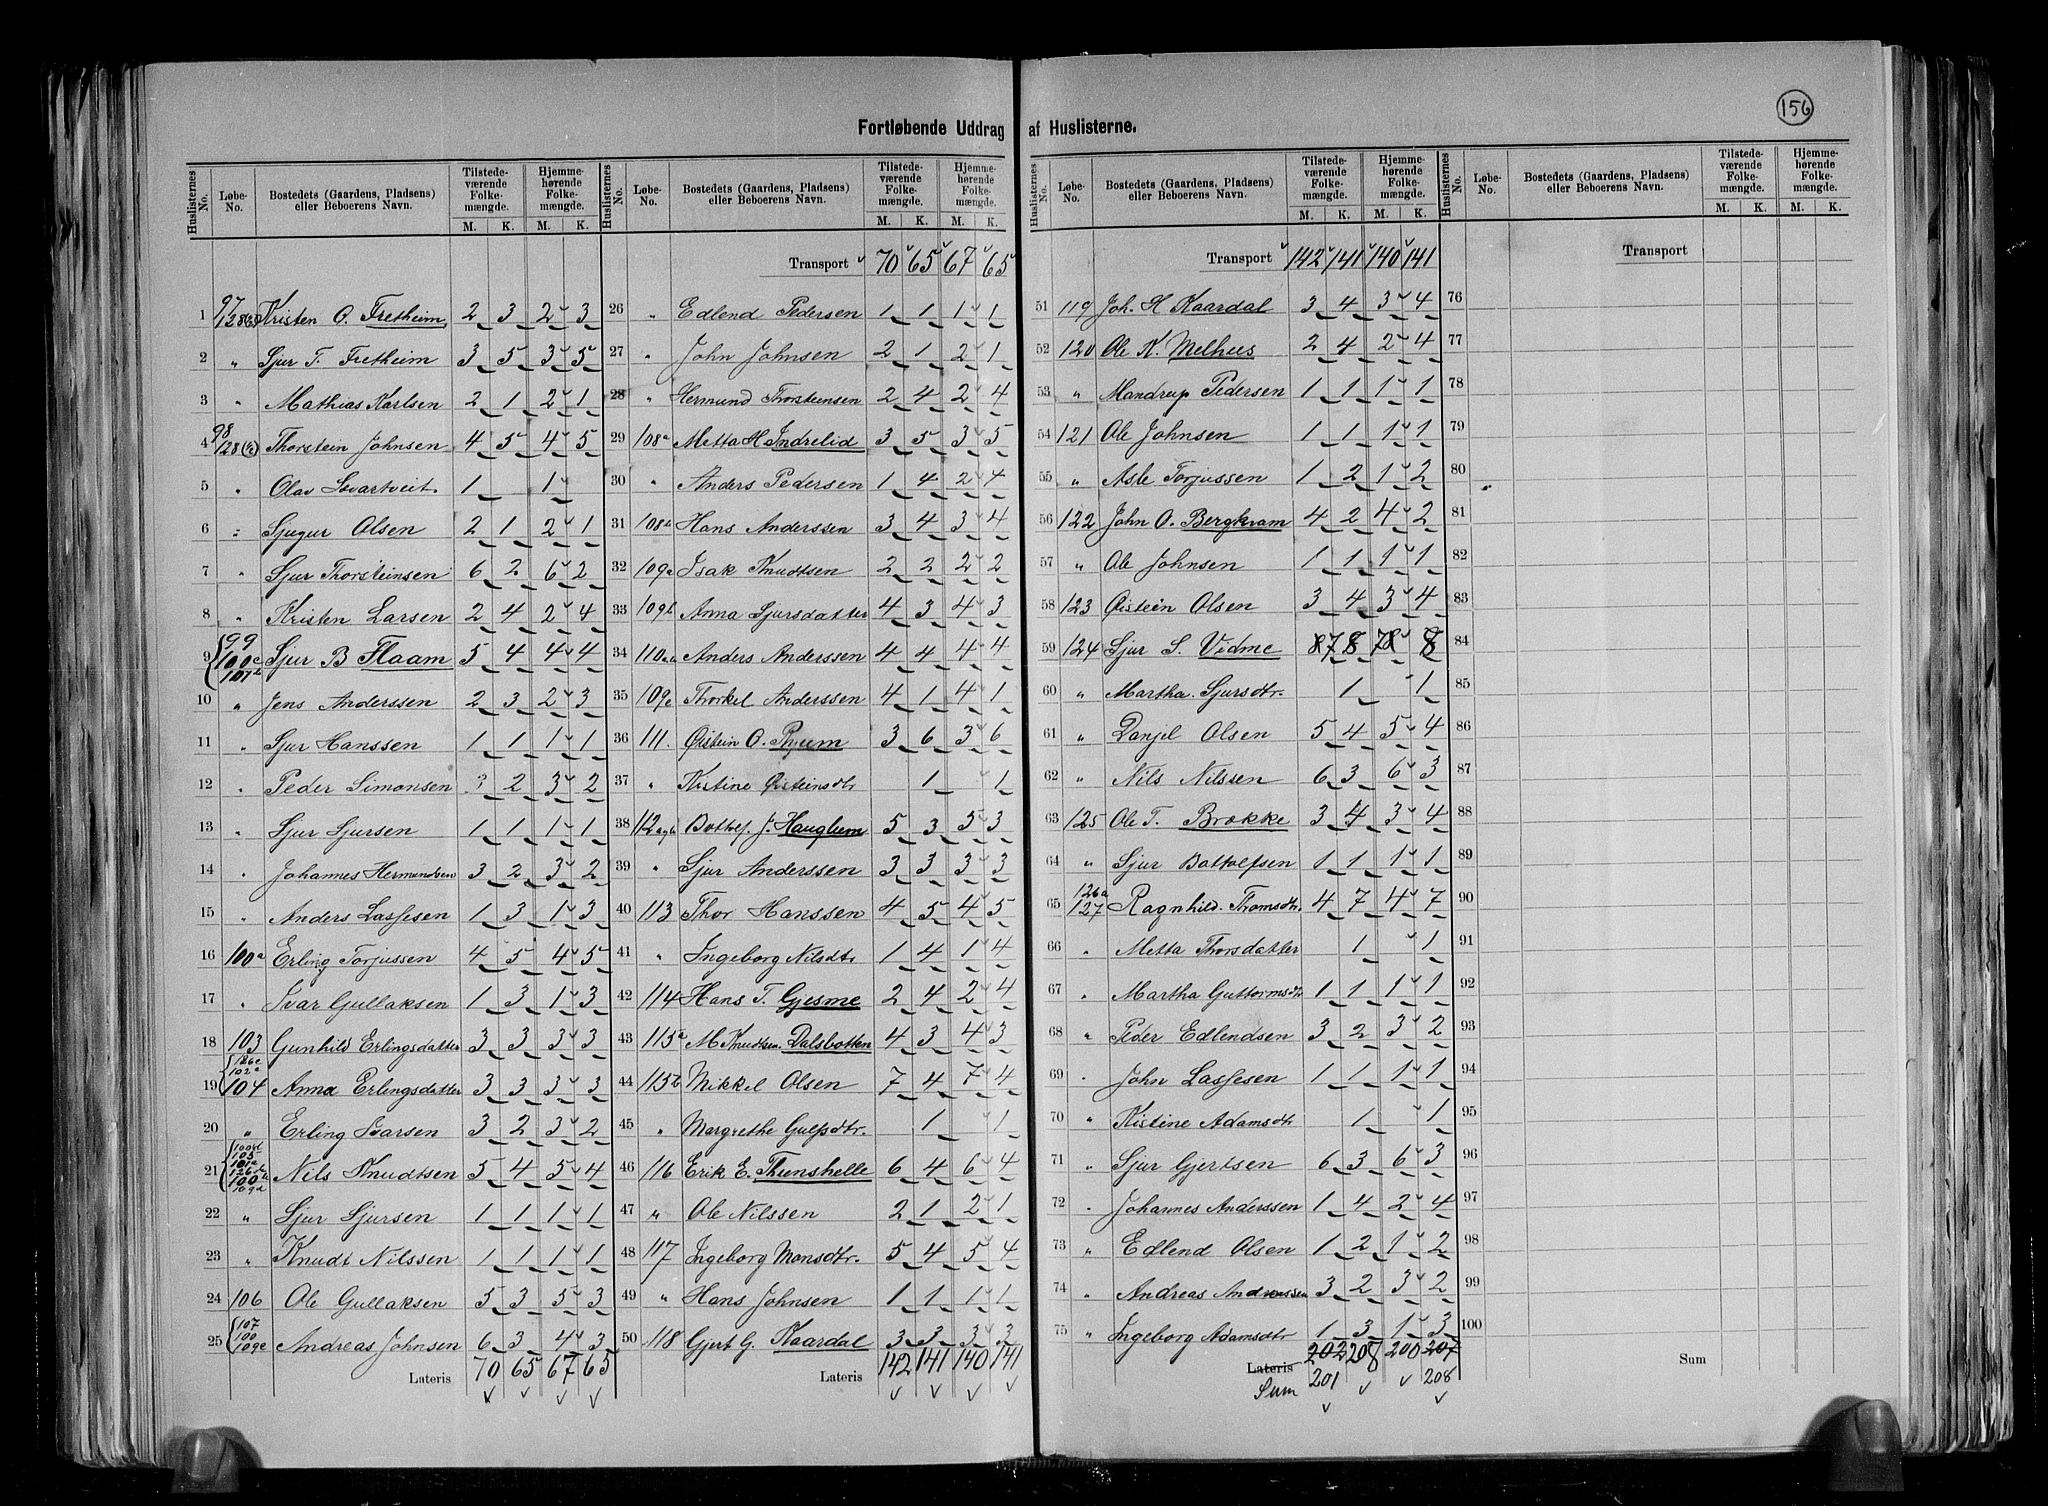 156
Fortløbende Uddrag af Huslisterne.
Huslisternes No. Løbe-No. Bostedets (Gaardens, Pladsens) eller Beboerens Navn. Tilstedeværende Folkemængde. M. K. Hjemmehørende Folkemængde. M. K.
1 97 128 Kristen O. Fretheim 2 3 2 3
2 " Sjur T. Fretheim 3 5 3 5
3 " Mathias Karlsen 2 1 2 1
4 98 128 Thorstein Johnsen 4 5 4 5
5 " Olav Svartveit. 1 1
6 " Sjugur Olsen 2 1 2 1
7 " Sjur Thorsteinsen 6 2 6 2
8 " Kristen Larsen 2 4 2 4
9 99 100c 101b Sjur B Flaam 5 4 4 4
10 " Jens Anderssen 2 3 2 3
11 " Sjur Hanssen 1 1 1 1
12 " Peder Simonsen 3 2 3 2
13 " Sjur Sjursen 1 1 1 1
14 " Johannes Hermundsen 3 2 3 2
15 " Anders Lassesen 1 3 1 3
16 100a Erling Torjussen 4 5 4 5
17 " Ivar Gullaksen 1 3 1 3
18 103 Gunhild Erlingsdatter 3 3 3 3
19 126c 102a 104 Anna Erlingsdatter 3 3 3 3
20 " Erling Ivarsen 3 2 3 2
21 100d 105 101a 126b 100b 109d Nils Knudtsen 5 4 5 4
22 " Sjur Sjursen 1 1 1 1
23 " Knudt Nilssen 1 1 1 1
24 106 Ole Gullaksen 5 3 5 3
25 107 100 109e Andreas Johnsen 6 3 4 3
Lateris 70 65 67 65
Huslisternes No. Løbe-No. Bostedets (Gaardens, Pladsens) eller Beboerens Navn. Tilstedeværende Folkemængde. M. K. Hjemmehørende Folkemængde. M. K.
Transport 70 65 67 65
26 " Edlend Pedersen 1 1 1 1
27 " John Johnsen 2 1 2 1
28 " Hermund Thorsteinsen 2 4 2 4
29 108a Metta H Indrelid 3 5 3 5
30 " Anders Pedersen 1 4 2 4
31 108b Hans Anderssen 3 4 3 4
32 109a Isak Knudtsen 2 2 2 2
33 109b Anna Sjursdatter 4 3 4 3
34 110ab Anders Anderssen 4 4 4 4
35 109c Thorkel Anderssen 4 1 4 1
36 111. Øistein O. Ryum 3 6 3 6
37 " Kristine Øisteinsdtr 1 1
38 112a,b Bottolf J. Hauglum 5 3 5 3
39 " Sjur Anderssen 3 3 3 3
40 113 Thor Hanssen 4 5 4 5
41 " Ingeborg Nilsdtr 1 4 1 4
42 114 Hans T. Gjesme 2 4 2 4
43 115a M Knudtsen. Dalsbotten 4 3 4 3
44 115b Mikkel Olsen 7 4 7 4
45 " Margrethe Gulfsdtr. 1 1
46 116 Erik E. Thunshelle 6 4 6 4
47 " Ole Nilssen 2 1 2 1
48 117 Ingeborg Monsdtr. 5 4 5 4
49 " Hans Johnsen 1 1 1 1
50 118 Gjert G. Kaardal 3 3 3 3
Lateris 142 141 140 141
Huslisternes No. Løbe-No. Bostedets (Gaardens, Pladsens) eller Beboerens Navn. Tilstedeværende Folkemængde. M. K. Hjemmehørende Folkemængde. M. K.
Transport 142 141 140 141
51 119 Joh. H Kaardal 3 4 3 4
52 120 Ole K. Melhus 2 4 2 4
53 " Mandrup Pedersen 1 1 1 1
54 121 Ole Johnsen 1 1 1 1
55 " Asle Torjussen 1 2 1 2
56 122 John O. Bergkvam 4 2 4 2
57 " Ole Johnsen 1 1 1 1
58 123 Øistein Olsen 3 4 3 4
59 124 Sjur S. Vidme 8 7 8 7 8 8
60 " Martha. Sjursdtr. 1 1
61 " Danjel Olsen 5 4 5 4
62 " Nils Nilssen 6 3 6 3
63 125 Ole T. Brokke 3 4 3 4
64 " Sjur Bottolfsen 1 1 1 1
65 126a 127 Ragnhild. Thomsdtr. 4 7 4 7
66 " Metta Thorsdatter 1 1
67 " Martha Guttormsdtr 1 1 1 1
68 " Peder Edlendsen 3 2 3 2
69 " John Lassesen 1 1 1 1
70 " Kistine Adamsdtr 1 1
71 " Sjur Gjertsen 6 3 6 3
72 " Johannes Anderssen 1 4 2 4
73 " Edlend Olsen 1 2 1 2
74 " Andreas Andreassen 3 2 3 2
75 " Ingeborg Adamsdtr 1 3 1 3
Lateris 202 208 200 207
Sum 201 208
Huslisternes No. Løbe-No. Bostedets (Gaardens, Pladsens) eller Beboerens Navn. Tilstedeværende Folkemængde. M. K. Hjemmehørende Folkemængde. M. K.
Transport
76
77
78
79
80
81
82
83
84
85
86
87
88
89
90
91
92
93
94
95
96
97
98
99
100
Sum